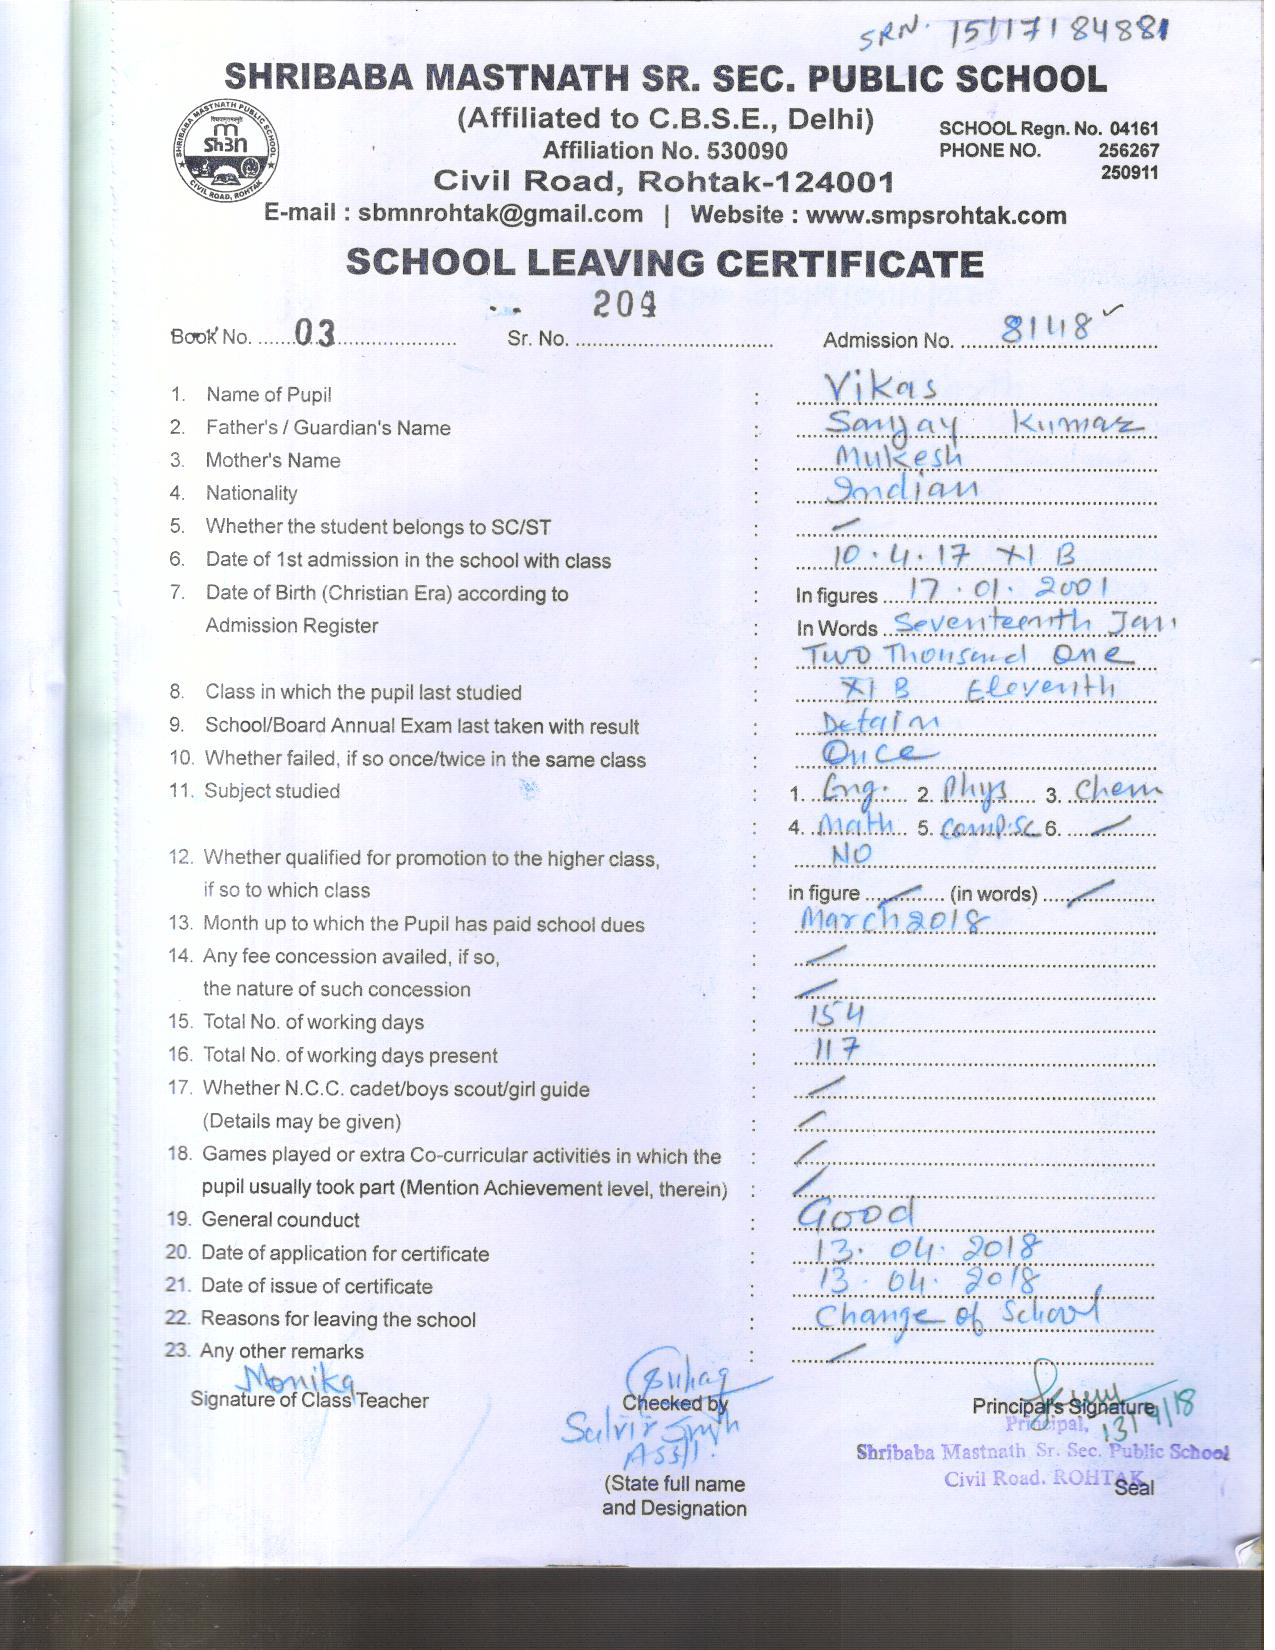 SRN. 15117184881
SHRIBABA MASTNATH SR. SEC. PUBLIC SCHOOL
(Affiliated to C.B.S.E., Delhi)
SCHOOL Regn. No. 04161
Affiliation No. 530090
PHONE NO. 256267
250911
SHRIBABA MASTNATH PUBLIC SCHOOL
CIVIL ROAD, ROHTAK
Civil Road, Rohtak-124001
E-mail : sbmnrohtak@gmail.com | Website : www.smpsrohtak.com
SCHOOL LEAVING CERTIFICATE
Book No. ......03..................... Sr. No. 204 Admission No. 8148
1. Name of Pupil : Vikas
2. Father's / Guardian's Name : Sanjay Kumar
3. Mother's Name : Mukesh
4. Nationality : Indian
5. Whether the student belongs to SC/ST : —
6. Date of 1st admission in the school with class : 10.4.17 XI B
7. Date of Birth (Christian Era) according to : In figures 17.01.2001
Admission Register : In Words Seventeenth Jan
: Two Thousand One
8. Class in which the pupil last studied : XI B Eleventh
9. School/Board Annual Exam last taken with result : Detain
10. Whether failed, if so once/twice in the same class : Once
11. Subject studied : 1. Eng. 2. Phys 3. Chem
: 4. Math 5. Comp.Sc 6. —
12. Whether qualified for promotion to the higher class, : NO
if so to which class : in figure — (in words) —
13. Month up to which the Pupil has paid school dues : March 2018
14. Any fee concession availed, if so, : —
the nature of such concession : —
15. Total No. of working days : 154
16. Total No. of working days present : 117
17. Whether N.C.C. cadet/boys scout/girl guide : —
(Details may be given) : —
18. Games played or extra Co-curricular activities in which the : —
pupil usually took part (Mention Achievement level, therein) : —
19. General counduct : Good
20. Date of application for certificate : 13.04.2018
21. Date of issue of certificate : 13.04.2018
22. Reasons for leaving the school : Change of School
23. Any other remarks : —
Monika
Signature of Class Teacher Checked by Principal's Signature
13/4/18
Singh
Asstt.
Principal,
Shribaba Mastnath Sr. Sec. Public School
Civil Road, ROHTAK
Seal
(State full name
and Designation